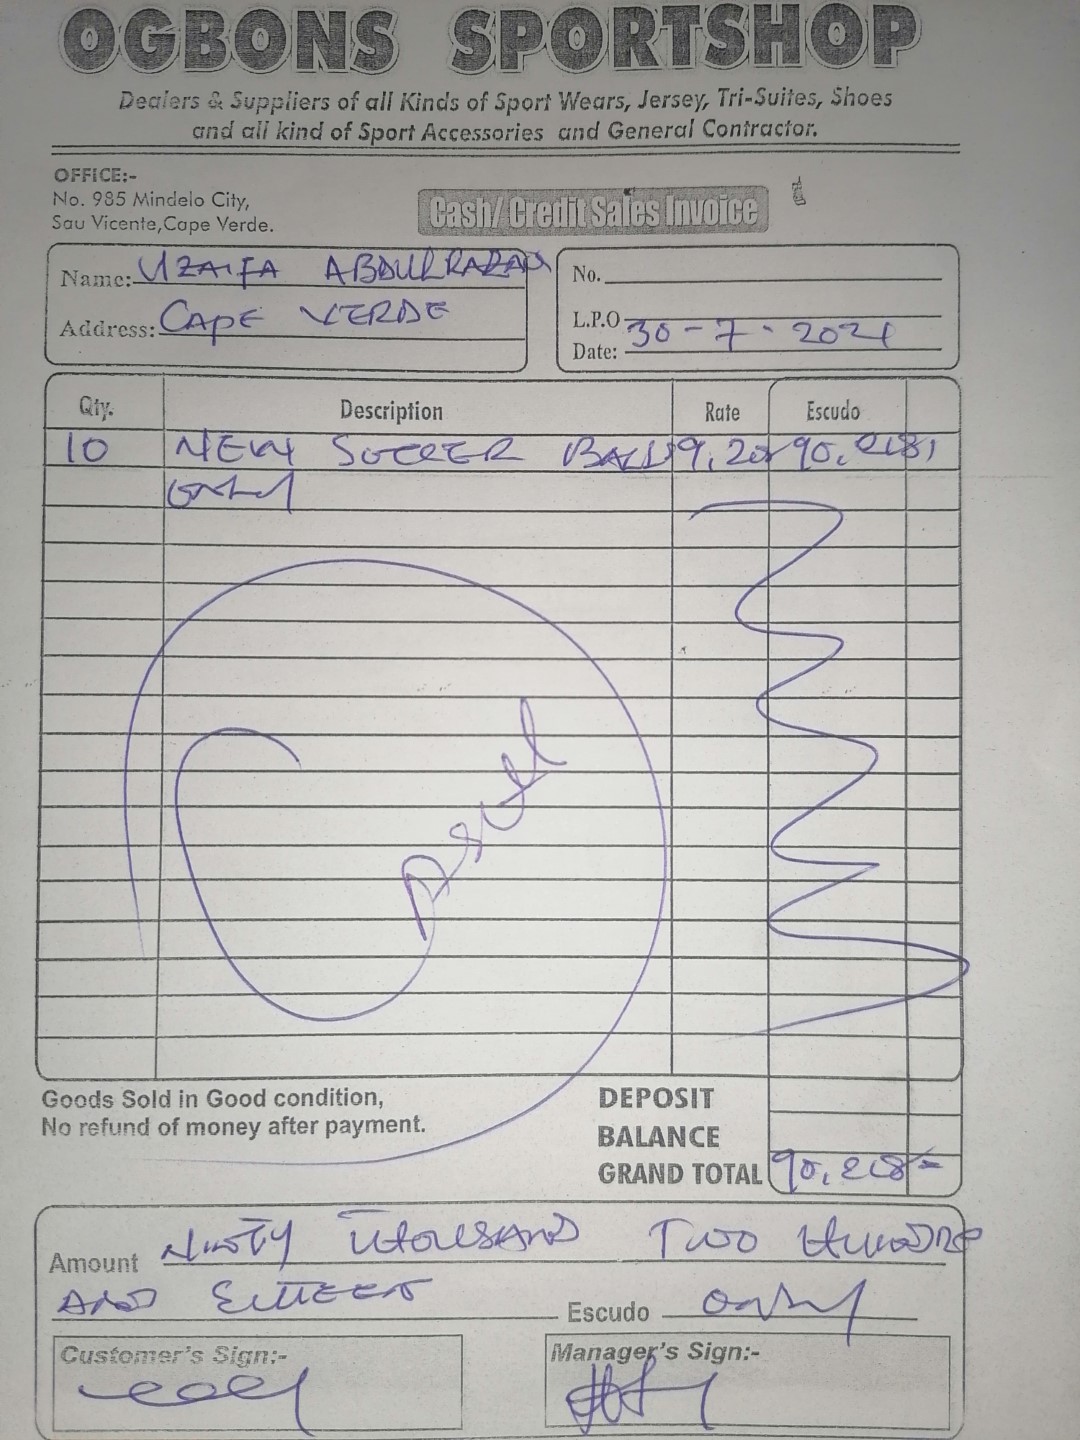 OGBONS SPORTSHOP
Dealers & Suppliers of all Kinds of Sport Wears, Jersey, Tri-Suites, Shoes
and all kind of Sport Accessories and General Contractor.
OFFICE:-
No. 985 Mindelo City,
Sau Vicente,Cape Verde.
Cash/Credit Sales Invoice
Name: UZAIFA ABDULRAZAU
Address: CAPE VERDE
No.
L.P.O
Date: 30-7-2021
Qty. Description Rate Escudo
10 NEW SOCCER BALLS 9,20 90,218
only
Goods Sold in Good condition,
No refund of money after payment.
DEPOSIT
BALANCE
GRAND TOTAL 90,218=
Amount Ninty Thousand Two Hundre
AND Eitteen Escudo only
Customer's Sign:-
Manager's Sign:-